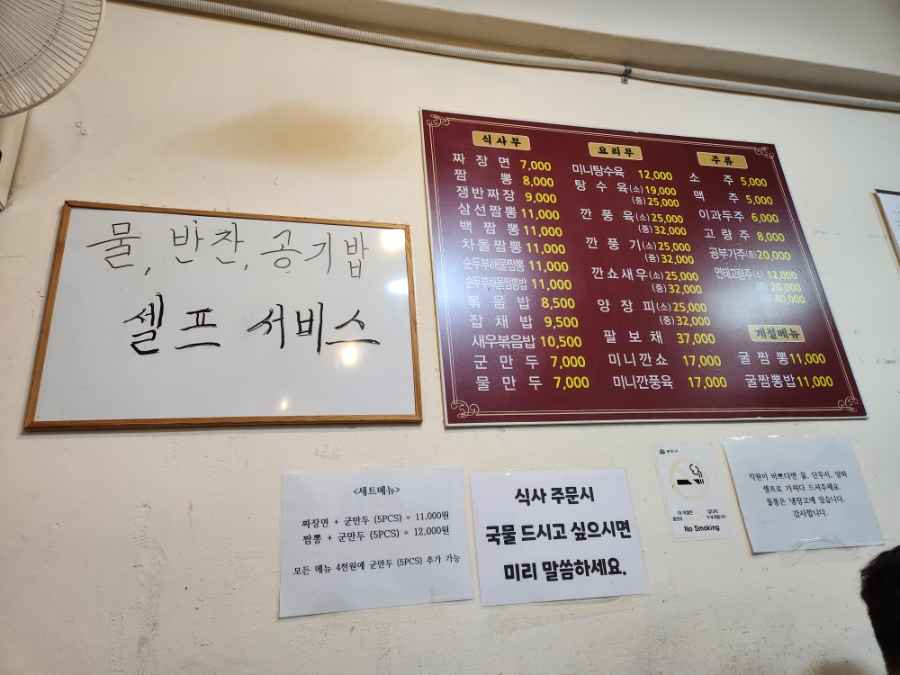 물, 반찬, 공기밥
셀프 서비스
식사부
짜장면 7,000
짬뽕 8,000
쟁반짜장 9,000
삼선짬뽕 11,000
백짬뽕 11,000
차돌짬뽕 11,000
순두부해물짬뽕 11,000
순두부해물짬뽕밥 11,000
볶음밥 8,500
잡채밥 9,500
새우볶음밥 10,500
군만두 7,000
물만두 7,000
요리부
미니탕수육 12,000
탕수육 (소)19,000
(중)25,000
깐풍육 (소)25,000
(중)32,000
깐풍기 (소)25,000
(중)32,000
깐쇼새우 (소)25,000
(중)32,000
양장피 (소)25,000
(중)32,000
팔보채 37,000
미니깐쇼 17,000
미니깐풍육 17,000
주류
소주 5,000
맥주 5,000
이과두주 6,000
고량주 8,000
공부가주 20,000
연태고량주 (소) 12,000
20,000
40,000
계절메뉴
굴짬뽕 11,000
굴짬뽕밥 11,000
<세트메뉴>
짜장면 + 군만두 (5PCS) = 11,000원
짬뽕 + 군만두 (5PCS) = 12,000원
모든 메뉴 4천원에 군만두 (5PCS) 추가 가능
식사 주문시
국물 드시고 싶으시면
미리 말씀하세요.
No Smoking
직원이 바쁘다면 물, 단무지, 양파
셀프로 가져다 드셔주세요.
물통은 냉장고에 있습니다.
감사합니다.